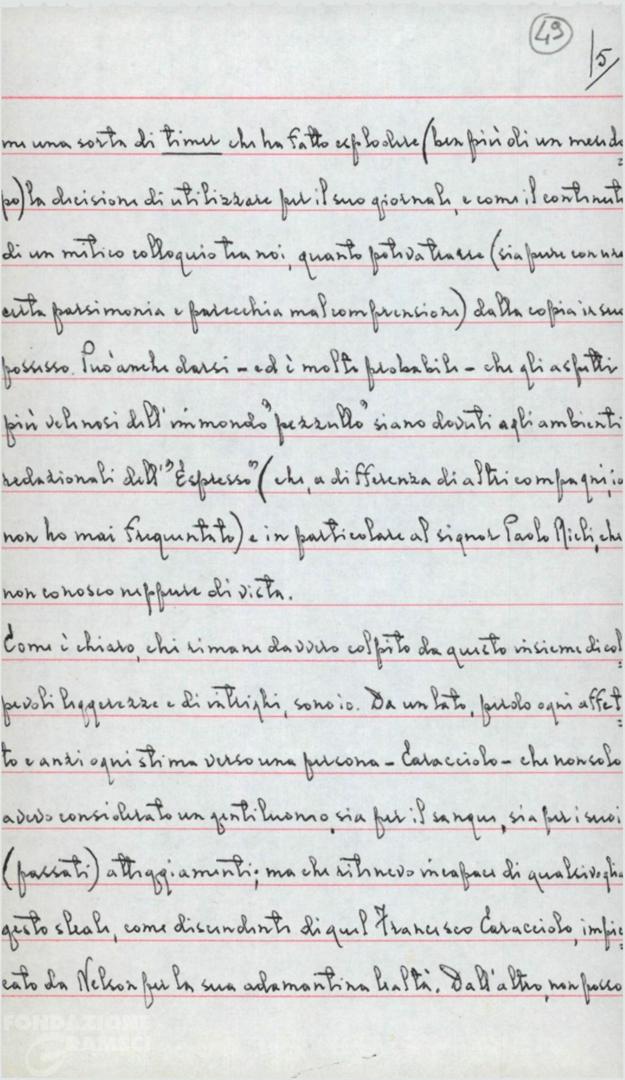 49
15
me una sorta di timer che ha fatto esplodere (ben più di un mese do=
po) la decisione di utilizzare per il suo giornale, e come il contenuto
di un mitico colloquio tra noi, quanto poteva trarre (sia pure con una
certa parsimonia e parecchia malcomprensione) dalla copia in suo
possesso. Può anche darsi – ed è molto probabile – che gli aspetti
più velenosi dell'immondo "pezzullo" siano dovuti agli ambienti
redazionali dell'"Espresso" (che, a differenza di altri compagni, io
non ho mai frequentato) e in particolare al signor Paolo Mieli, che
non conosco neppure di vista.
Come è chiaro, chi rimane davvero colpito da questo insieme di col=
pevoli leggerezze e di intrighi, sono io. Da un lato, perdo ogni affet=
to e anzi ogni stima verso una persona – Caracciolo – che non solo
avevo considerato un gentiluomo, sia per il sangue, sia per i suoi
(passati) atteggiamenti; ma che ritenevo incapace di qualsivoglia
gesto sleale, come discendente di quel Francesco Caracciolo, impic=
cato da Nelson per la sua adamantina lealtà. Dall'altro, non posso
FONDAZIONE
GRAMSCI